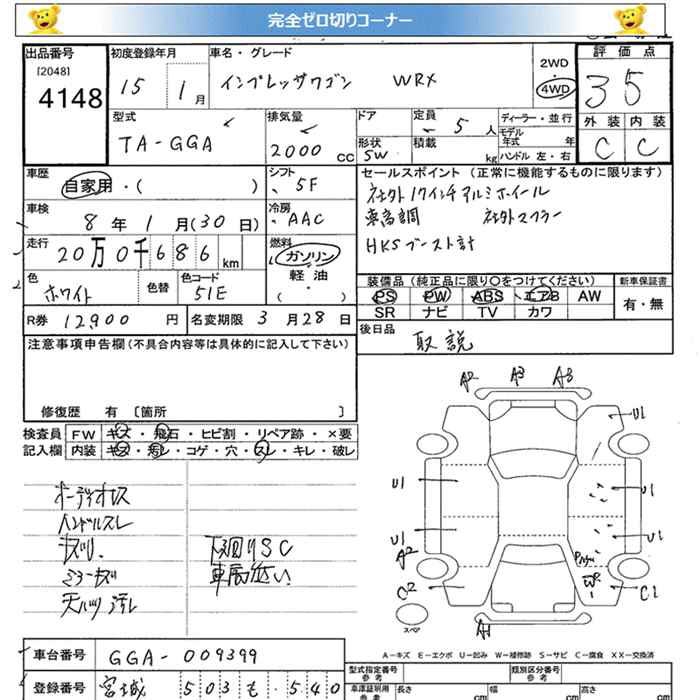 完全ゼロ切りコーナー
出品番号
[2048]
4148
初度登録年月
15 1月
車名・グレード
インプレッサワゴン WRX
2WD
4WD
評価点
35
外装 内装
C C
型式
TA-GGA
排気量
2000 cc
ドア
形状
SW
定員
5人
積載
kg
ディーラー・並行
モデル
年式 年
ハンドル 左・右
車歴
自家用・( )
シフト
5F
車検
8年1月(30日)
冷房
AAC
走行
20万0千686km
燃料
ガソリン
軽油
( ・ )
色
ホワイト
色替
色コード
51E
R券 12,900円
名変期限 3月28日
セールスポイント(正常に機能するものに限ります)
社外17インチアルミホイール
車高調 社外マフラー
HKSブースト計
装備品(純正品に限り〇をつけてください)
新車保証書
PS PW ABS エアB AW
有・無
SR ナビ TV カワ
後日品
取説
注意事項申告欄(不具合内容等は具体的に記入して下さい)
修復歴 有 [箇所 ]
検査員
記入欄
FW キズ・飛石・ヒビ割・リペア跡・×要
内装 キズ・汚レ・コゲ・穴・スレ・キレ・破レ
オーディオレス
ハンドルスレ
キズ
ミラーキズ
天バリ汚レ
下回りSC
車高低い
A2 A3 A3
U1
U1 U1
U1 U1
A2
C2 C1
スペア
A1
A-キズ E-エクボ U-凹み W-補修跡 S-サビ C-腐食 XX-交換済
車台番号
GGA-009399
登録番号
宮城 503 も 540
型式指定番号
参考
類別区分番号
参考
車庫証明用
参考
長さ cm
幅 cm
高さ cm